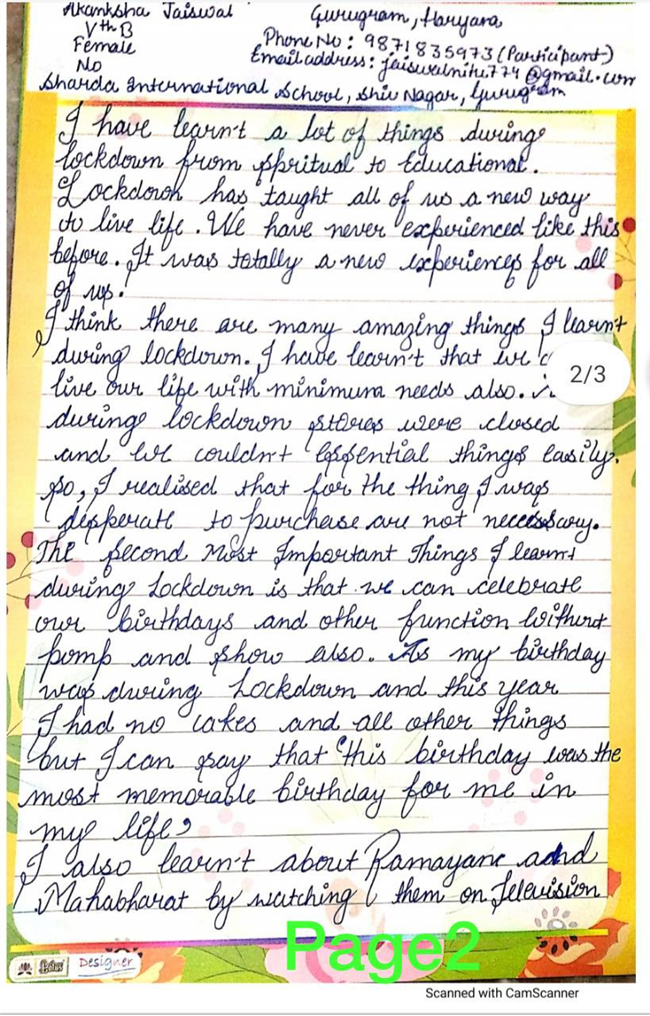 Akanksha Jaiswal
Vth B
Female
No
Gurugram, Haryana
Phone No : 9871835973 (Participant)
Email address : jaiswalnitu774@gmail.com
Sharda International School, Shiv Nagar, Gurugram
I have learn't a lot of things during
lockdown from spritual to Educational.
Lockdown has taught all of us a new way
to live life. We have never experienced like this
before. It was totally a new experiences for all
of us.
I think there are many amazing things I learn't
during lockdown. I have learn't that we
live our life with minimum needs also.
during lockdown stores were closed
and we couldn't essential things easily.
so, I realised that for the thing I was
desperate to purchase are not necessary.
The second Most Important Things I learnt
during Lockdown is that we can celebrate
our birthdays and other function without
pomp and show also. As my birthday
was during Lockdown and this year
I had no cakes and all other things
but I can say that "this birthday was the
most memorable birthday for me in
my life,
I also learn't about Ramayana and
Mahabharat by watching them on Television
2/3
Page2
Lotus Designer
Scanned with CamScanner